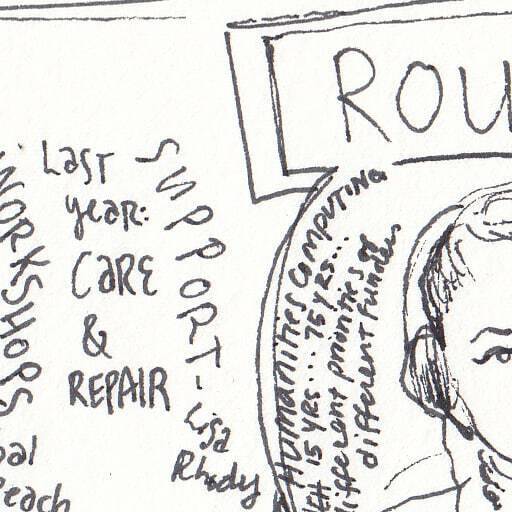 ROU
WORKSHOPS
Last
year:
CARE
&
REPAIR
SUPPORT-
Lisa
Rhody
HUMANITIES COMPUTING
15 YRS... 75 YRS...
different priorities of
different funders